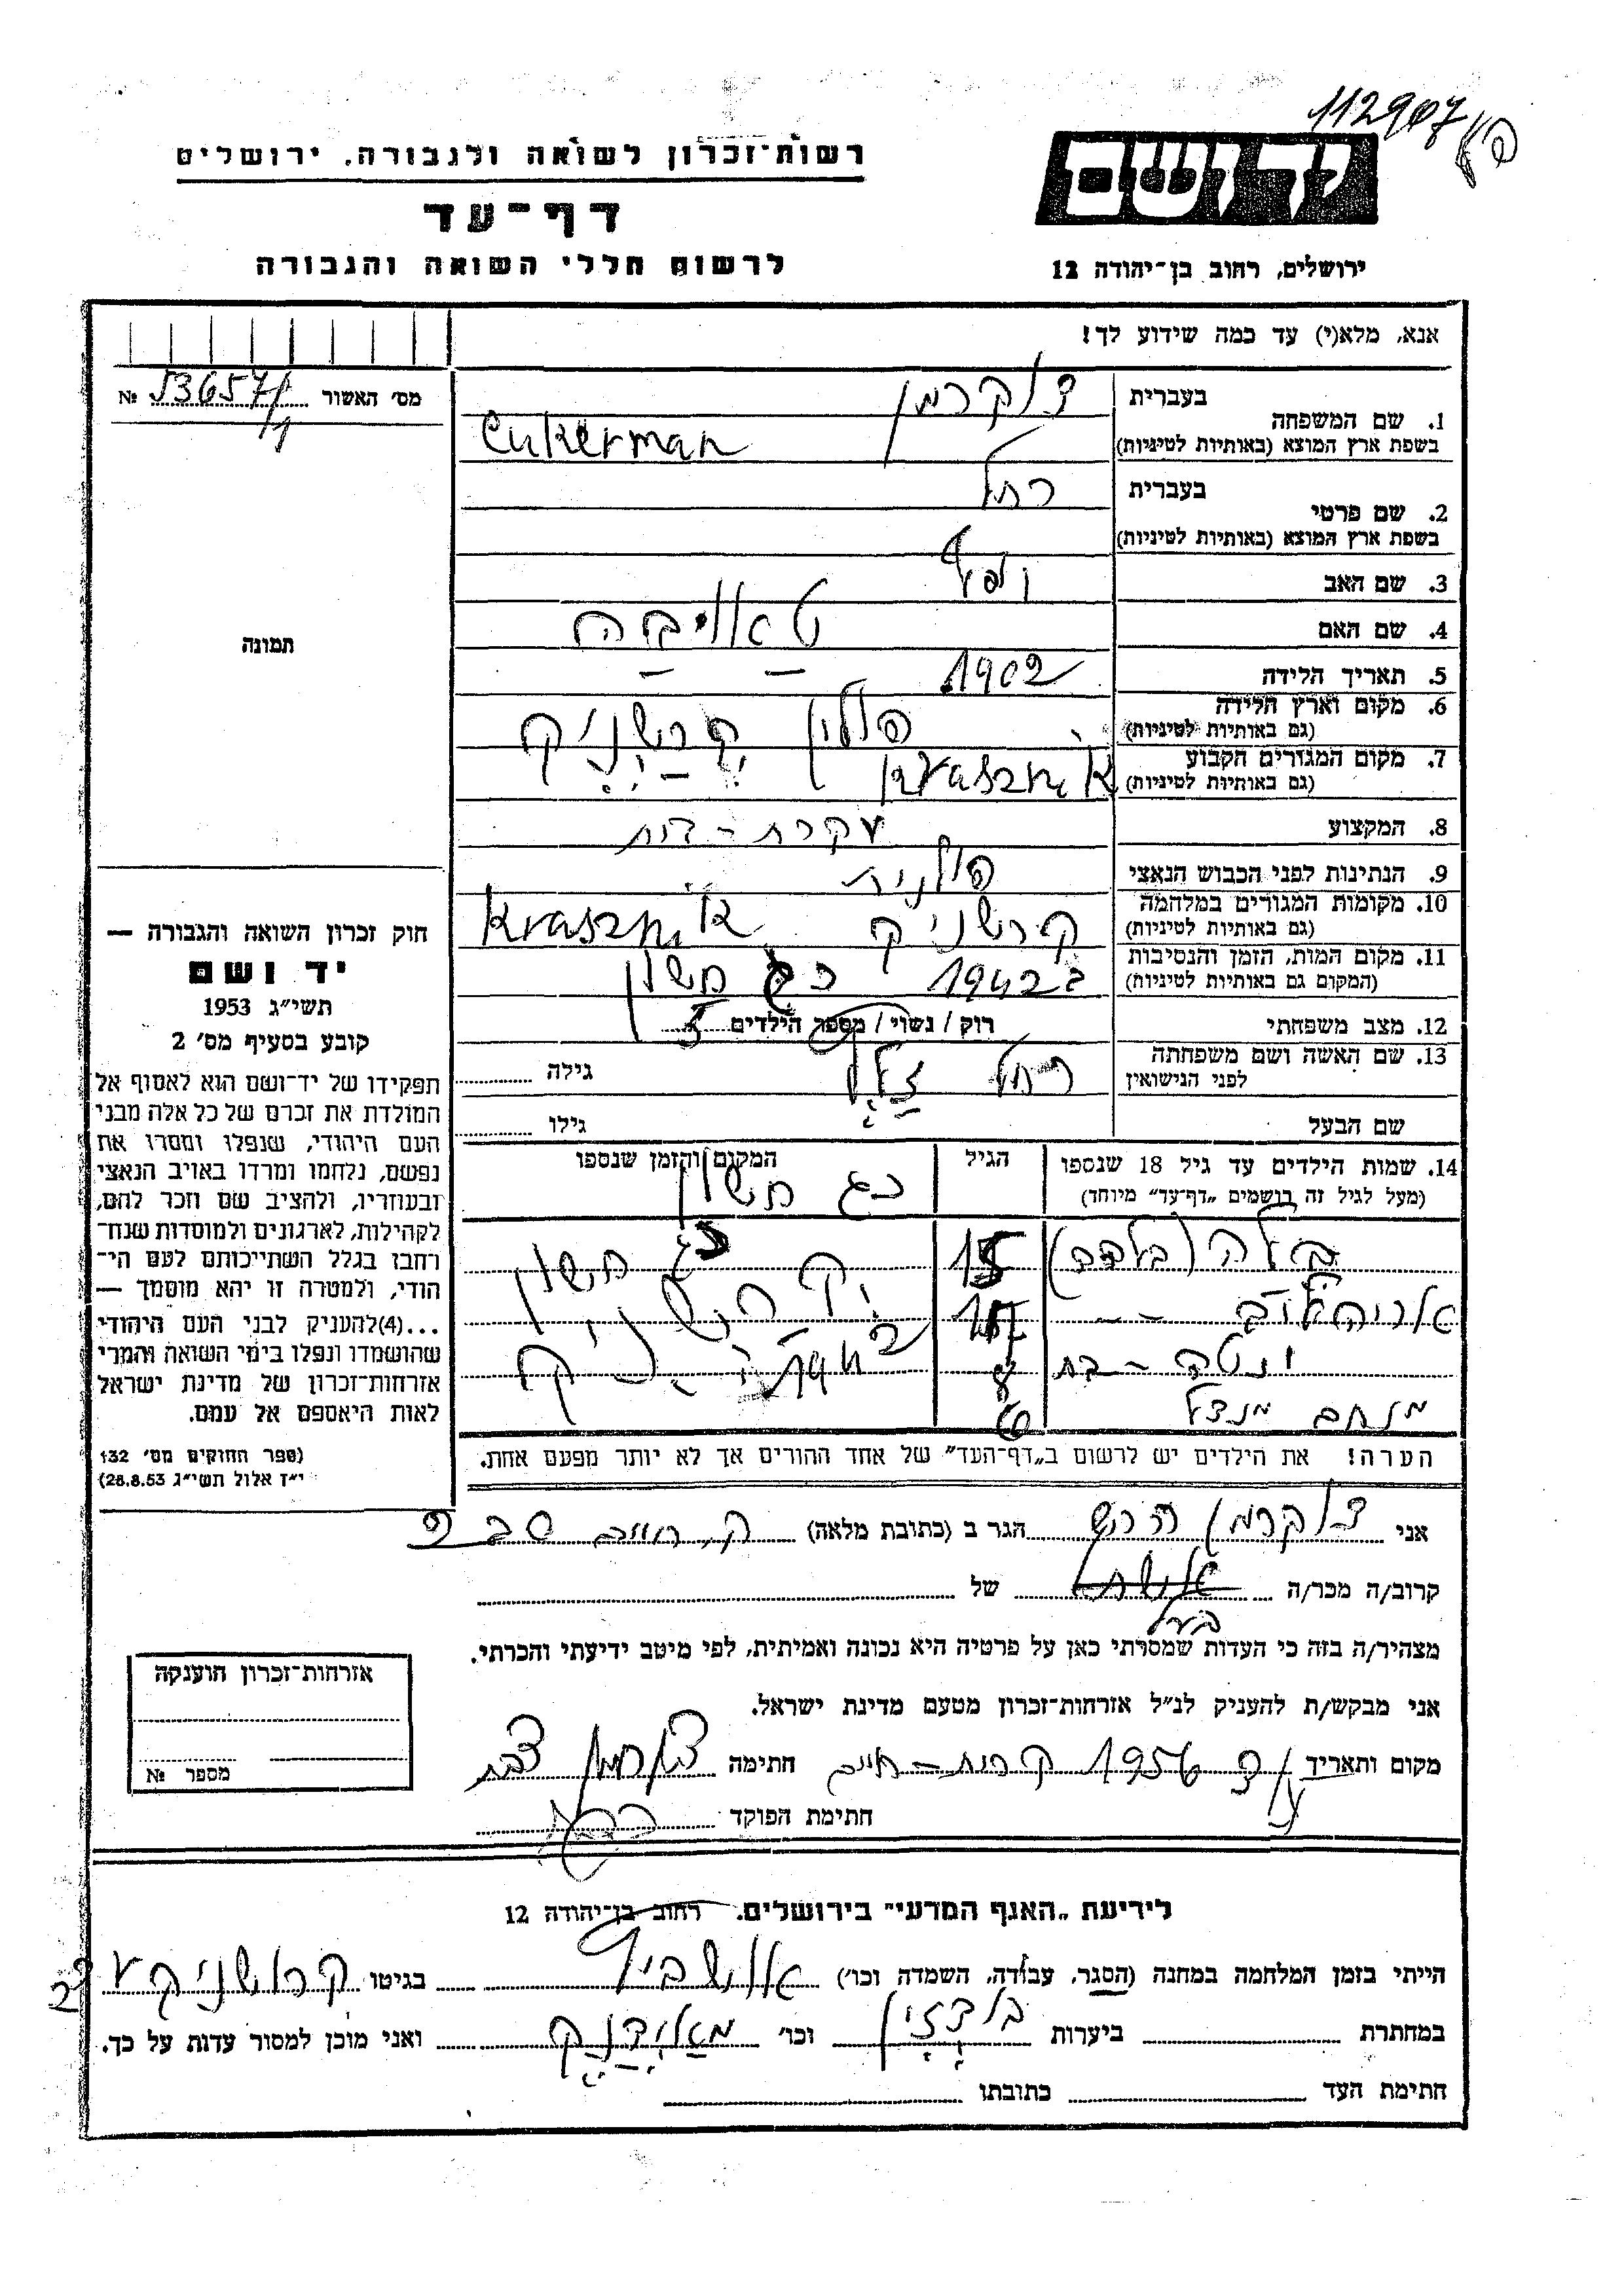 112907
יד ושם
רשות־זכרון לשואה ולגבורה, ירושלים
דף־עד
לרשום חללי השואה והגבורה
ירושלים, רחוב בן־יהודה 12
אנא, מלא(י) עד כמה שידוע לך!
מס׳ האשור № 53657/1
1. שם המשפחה בעברית צוקרמן
בשפת ארץ המוצא (באותיות לטיניות) Cukerman
2. שם פרטי בעברית רחל
בשפת ארץ המוצא (באותיות לטיניות)
3. שם האב יוסף
4. שם האם
5. תאריך הלידה 1902
6. מקום וארץ הלידה (גם באותיות לטיניות) פולין קרשניק
7. מקום המגורים הקבוע (גם באותיות לטיניות) Krasznik
8. המקצוע עקרת-בית
9. הנתינות לפני הכבוש הנאצי פולנית
10. מקומות המגורים במלחמה (גם באותיות לטיניות) קרשניק Krasznik
11. מקום המות, הזמן והנסיבות (המקום גם באותיות לטיניות) ב 1942 כג חשון
12. מצב משפחתי רוק / נשוי / מספר הילדים 5
13. שם האשה ושם משפחתה לפני הנישואין רחל גילה
שם הבעל גילו
14. שמות הילדים עד גיל 18 שנספו הגיל המקום והזמן שנספו
(מעל לגיל זה רושמים „דף־עד" מיוחד) כג חשון
בלה 15 כג חשון
קרשניק
בת
מנחם מנדל
הערה! את הילדים יש לרשום ב„דף־העד" של אחד ההורים אך לא יותר מפעם אחת.
תמונה
חוק זכרון השואה והגבורה —
יד ושם
תשי״ג 1953
קובע בסעיף מס׳ 2
תפקידו של יד־ושם הוא לאסוף אל
המולדת את זכרם של כל אלה מבני
העם היהודי, שנפלו ומסרו את
נפשם, נלחמו ומרדו באויב הנאצי
ובעוזריו, ולהציב שם וזכר להם,
לקהילות, לארגונים ולמוסדות שנח־
רחבו בגלל השתייכותם לעם הי־
הודי, ולמטרה זו יהא מוסמך —
...(4)להעניק לבני העם היהודי
שהושמדו ונפלו בימי השואה והמרי
אזרחות־זכרון של מדינת ישראל
לאות היאספם אל עמם.
(ספר החוקים מס׳ 132
י״ז אלול תשי״ג 28.8.53)
אני צוקרמן הרש הגר ב (כתובת מלאה) ק. חיים
קרוב/ה מכר/ה של
בעל
מצהיר/ה בזה כי העדות שמסרתי כאן על פרטיה היא נכונה ואמיתית, לפי מיטב ידיעתי והכרתי.
אני מבקש/ת להעניק לנ״ל אזרחות־זכרון מטעם מדינת ישראל.
מקום ותאריך 1956 קרית-חיים חתימה צוקרמן
חתימת הפוקד
אזרחות־זכרון הוענקה
מספר №
לידיעת „האגף המדעי" בירושלים. רחוב בן־יהודה 12
הייתי בזמן המלחמה במחנה (הסגר, עבודה, השמדה וכו׳) אושביץ בגיטו קרושניק
במחתרת ביערות בודזין וכו׳ מאידנק ואני מוכן למסור עדות על כך.
חתימת העד כתובתו